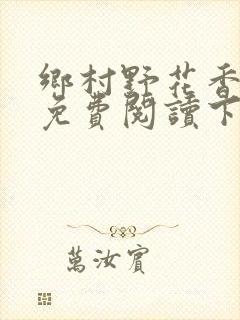 鄉村野花香
免費閱讀下
萬汝賓